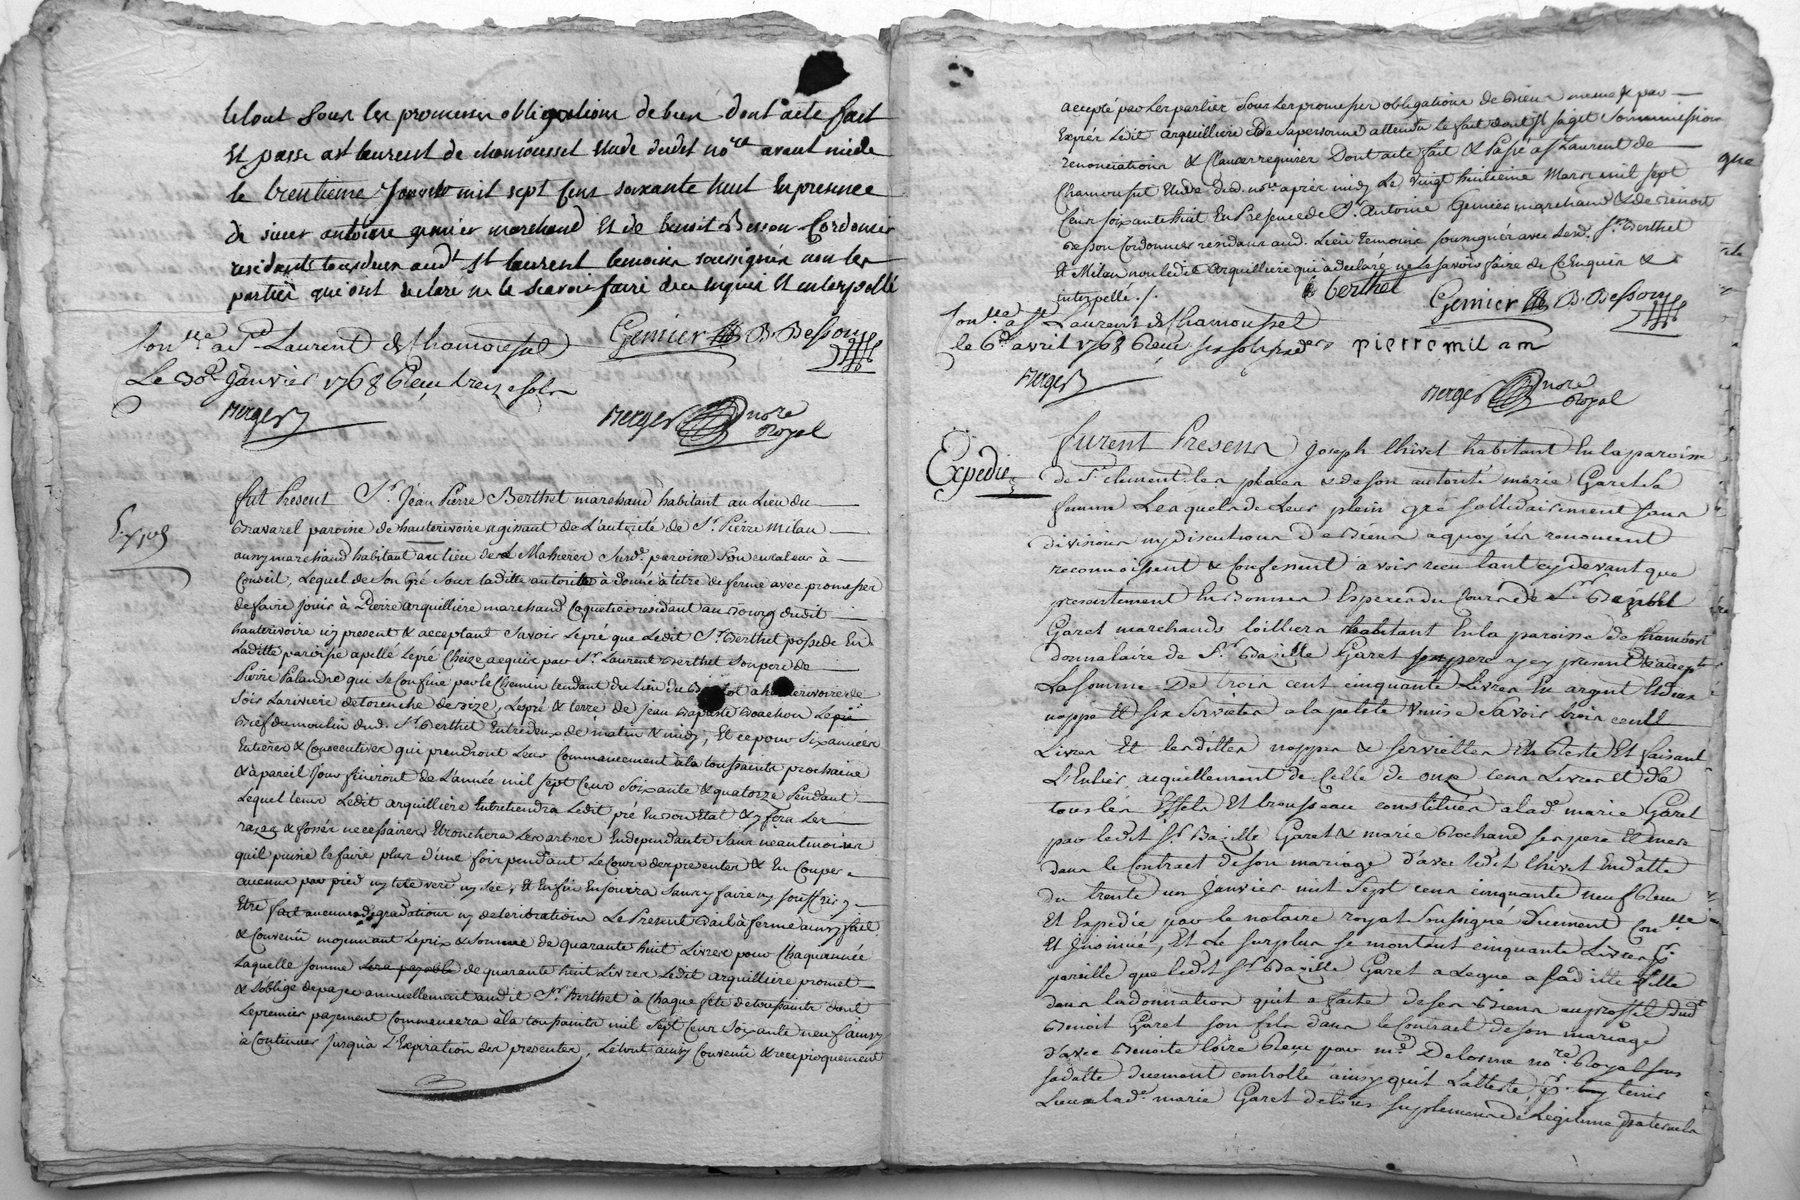 le tout sous les promesses obligations de bien dont acte fait
et passé a st laurent de chamousset etude dudet nore avant midi
le trentieme Janvier mil sept cens soixante huit en presence
de sieur antoine genier marchand et de benoit Besson Cordonier
residants tous deux audt st laurent temoins soussignés non les
parties qui ont declaré ne le scavoir faire de ce enquis et interpellé
Conlle a St Laurent de Chamousset
Genier B. Besson
Le 30e Janvier 1768 Reçu treize sols
Berger
Berger nore Royal
Fut Present Sr Jean Pierre Berthet marchand habitant au Lieu du
Bravarel paroisse de hauterivoire agissant de L'autorité de Sr Pierre Milan
aussy marchand habitant au lieu de Mahierer Susde paroisse Son curateur à
Conseil, Lequel de Son Gré Sous laditte autorité à donné à titre de ferme avec promesses
de faire Jouir à Pierre arquilliere marchand Coquetier residant au Bourg dudit
hauterivoire icy present & acceptant Savoir Le pré que Ledit Sr Berthet possede En
Laditte paroisse apellé Lepré Cheize acquis par Sr Laurent Berthet Son pere de
Pierre Palandre qui Se Confine par le Chemin tendant du Lieu du a hauterivoire de
Soir La riviere de torenche de bize, Lepré & terre de Jean Baptiste Bachou Le pré
Bief du moulin dud. Sr Berthet Entredeux de matin & midy, Et ce pour Six années
Entieres & Consecutives qui prendront Leur Commancement à la toussaints prochaine
& à pareil Jour finiront de L'année mil Sept Cens Soixante & quatorze Pendant
Lequel tems Ledit arquilliere Entretiendra Ledit pré En son Etat & y fera Les
razes & fossés necessaires Etronchera Les arbres Independants Sans neantmoins
quil puisse le faire plus d'une fois pendant Le Cours des presentes & En Couper
aucuns par pied ny tete vere ny Sec, Et Enfin En Jouira Sans y faire ny Souffrir y
Etre fait aucunes degradations ny deteriorations Le Present Bail à ferme ainsy fait
& Convenu moyennant Leprix & Somme de quarante huit Livres pour Chaque année
Laquelle Somme Sera payable de quarante huit Livres Ledit arquilliere promet
& S'oblige de payer annuellement audit Sr Berthet à Chaque fete de toussaints dont
Lepremier payement Commencera à la toussaints mil Sept Cens Soixante neuf ainsy
à Continuer Jusqu'à L'Expiration des presentes, Le tout ainsy Convenu & reciproquement
accepté par Les parties Sous Les promesses obligations de Biens mesme par
Exprés Ledit arquilliere De Sa personne attendu le fait dont Il S'agit Soummissions
renonciations & Clauses requises Dont acte fait & Passé a St Laurent de
Chamousset Etude dud. nore aprés midy Le vingt huitieme Mars mil Sept
Cens Soixante huit En Presence de Sr Antoine Genier marchand & de Benoit
Besson Cordonnier residans aud. Lieu temoins Soussignés avec Lesd. Srs Berthet
Et Milan non ledit arquilliere qui à declaré ne le Savoir faire de Ce Enquis &
interpellé ./.
berthet Genier B. Besson
Conlle a St Laurent de Chamousset
le 6e avril 1768 Reçu six sols
pierre milan
Berger
Berger nore Royal
Expedié
Furent Presens Joseph Chivet habitant En la paroisse
de St clement les places & de son autorité marie Garet sa
femme Lesquels de Leur plein gré sollidairement sans
divisions ny discutions De Biens a quoy ils renoncent
reconnoissent & Confessent a voir reçu tant cy devant que
presentement En Bonnes Especes du Cours de Sr Benoit
Garet marchands toillier habitant En la paroisse de Chambost
donnataire de Sr Bazille Garet son pere a ce present & accept
La somme De trois cent cinquante Livres En argent Et deux
nappe Et six serviettes a la petite Venise Savoir trois cent
Livres Et lesdittes nappes & serviettes En Reste Et faisant
L'Entier acquittement de Celle de onze cens Livres Et de
tous les Effets Et trousseau constitués a lade marie Garet
par ledit Sr Bazille Garet & marie Bochand ses pere Et mere
dans le Contract de son mariage d'avec ledit Chivet En datte
du trente un Janvier mil Sept cens cinquante neuf Reçu
Et Expedié par le notaire royal Soussigné Duement Conlle
Et Insinué, Et Le surplus se montant cinquante Livres
pareille que ledit Sr Bazille Garet a Legué a saditte fille
dans la donnation qu'il a faite de ses Biens au proffit dudt
Benoit Garet son fils dans le Contract de son mariage
d'avec Benoite Loire Reçu par me Delorme nore Royal sous
sa datte duement controllé ainsy qu'il L'atteste, pr luy tenir
Lieu a lade marie Garet de tous suplemens de Legitime paternels